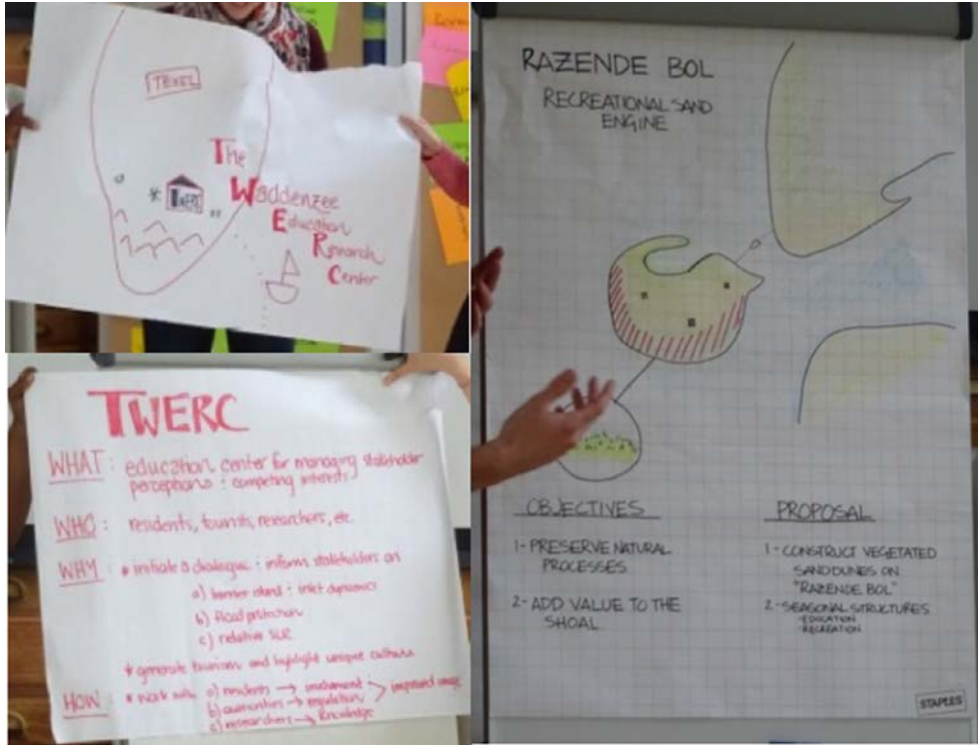 TEXEL
TWERC
The
Waddenzee
Education
Research
Center
TWERC
WHAT: education center for managing stakeholder
perceptions : competing interests
WHO: residents, tourists, researchers, etc.
WHY: * initiate a dialogue : inform stakeholders on
a) barrier island : inlet dynamics
b) flood protection
c) relative SLR
* generate tourism and highlight unique culture
HOW: * work with a) residents → involvement > improved image
b) authorities → regulation
c) researchers → knowledge
RAZENDE BOL
RECREATIONAL SAND
ENGINE
OBJECTIVES
1- PRESERVE NATURAL
PROCESSES
2- ADD VALUE TO THE
SHOAL
PROPOSAL
1- CONSTRUCT VEGETATED
SAND DUNES ON
"RAZENDE BOL"
2- SEASONAL STRUCTURES
- EDUCATION
- RECREATION
STAPLES